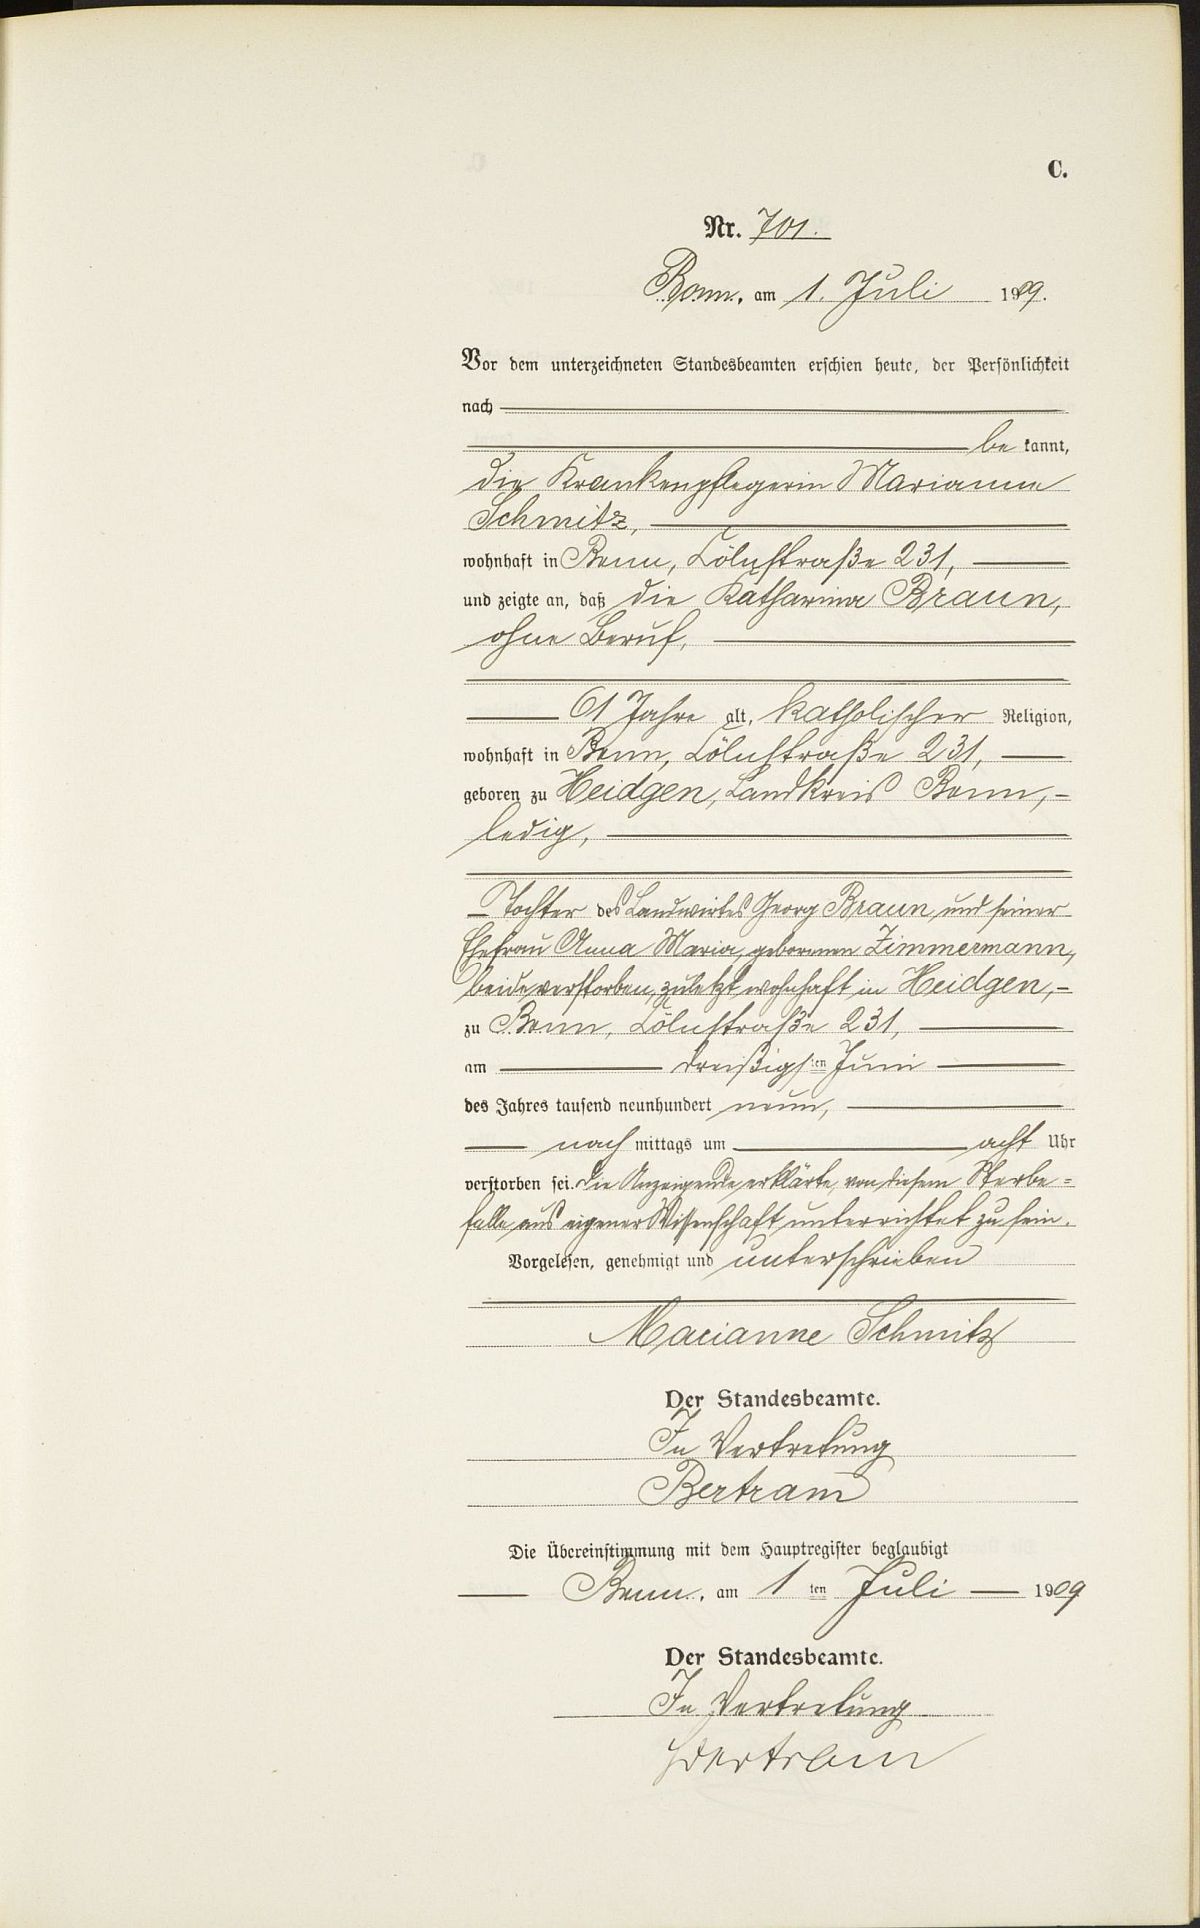 C.
Nr. 701.
Bonn, am 1. Juli 1909.
Vor dem unterzeichneten Standesbeamten erschien heute, der Persönlichkeit
nach
be kannt,
die Krankenpflegerin Marianne
Schmitz,
wohnhaft in Bonn, Cölnstraße 231,
und zeigte an, daß die Katharina Braun,
ohne Beruf,
61 Jahre alt, katholischer Religion,
wohnhaft in Bonn, Cölnstraße 231,
geboren zu Heidgen, Landkreis Bonn,
ledig,
Tochter des Landwirtes Georg Braun und seiner
Ehefrau Anna Maria, geborenen Zimmermann,
beide verstorben, zuletzt wohnhaft in Heidgen,
zu Bonn, Cölnstraße 231,
am dreißigsten Juni
des Jahres tausend neunhundert neun,
nach mittags um acht Uhr
verstorben sei. Die Anzeigende erklärte, von diesem Sterbe=
falle aus eigener Wissenschaft unterrichtet zu sein.
Vorgelesen, genehmigt und unterschrieben
Marianne Schmitz
Der Standesbeamte.
In Vertretung
Bertram
Die Übereinstimmung mit dem Hauptregister beglaubigt
Bonn, am 1 ten Juli 1909
Der Standesbeamte.
In Vertretung
Bertram